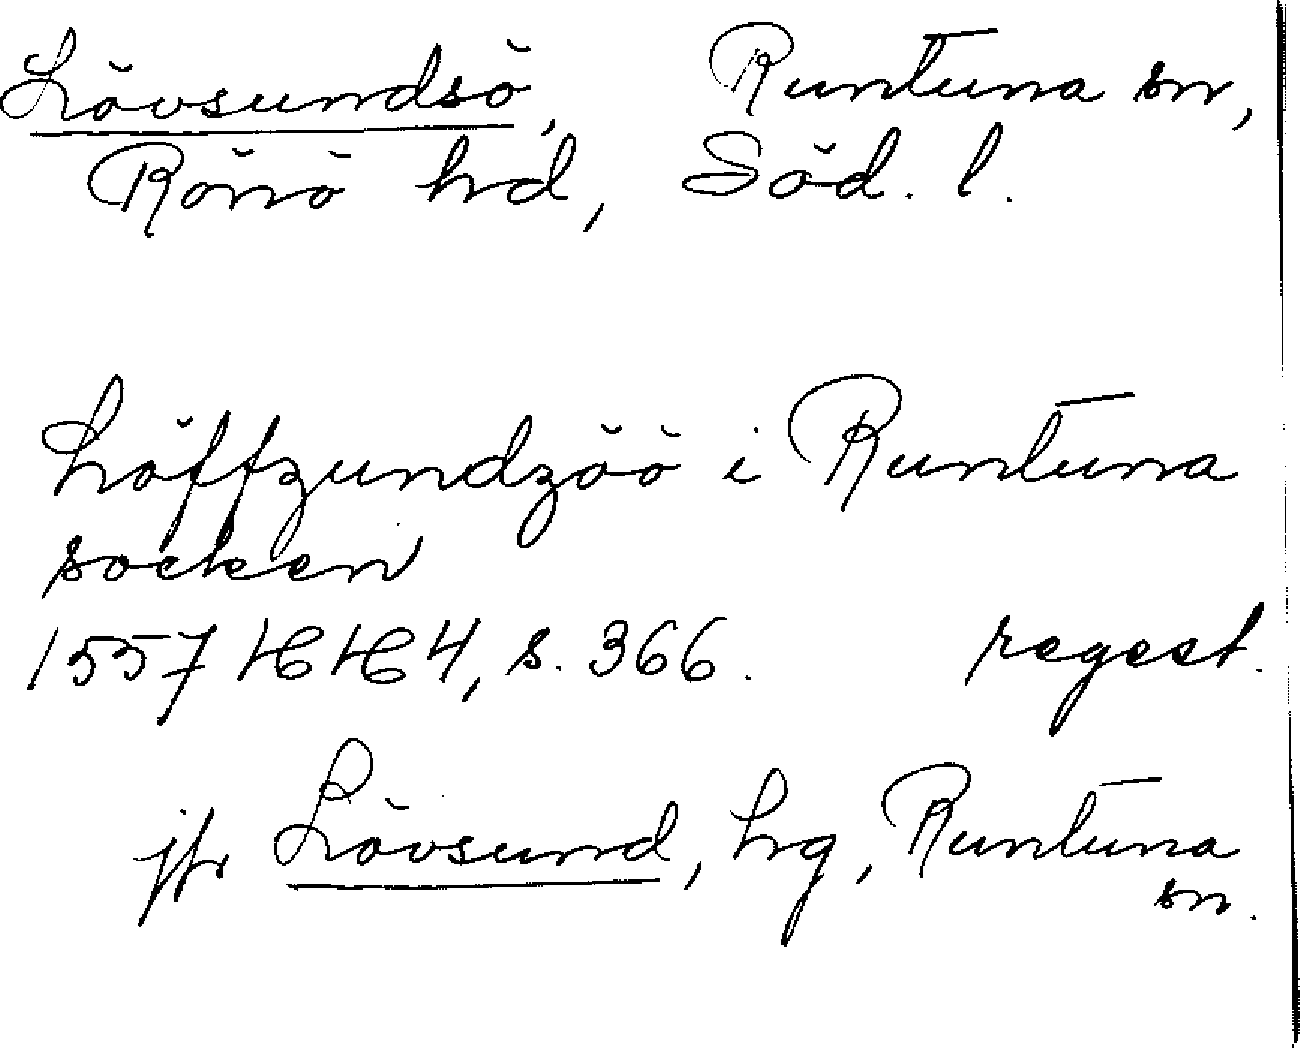 Lövsundsö, Runtuna sn,
Rönö hd, Söd. l.
Löffzundzöö i Runtuna
socken
1557 HH 4, s. 366. regest.
jfr Lövsund, hg, Runtuna
sn.